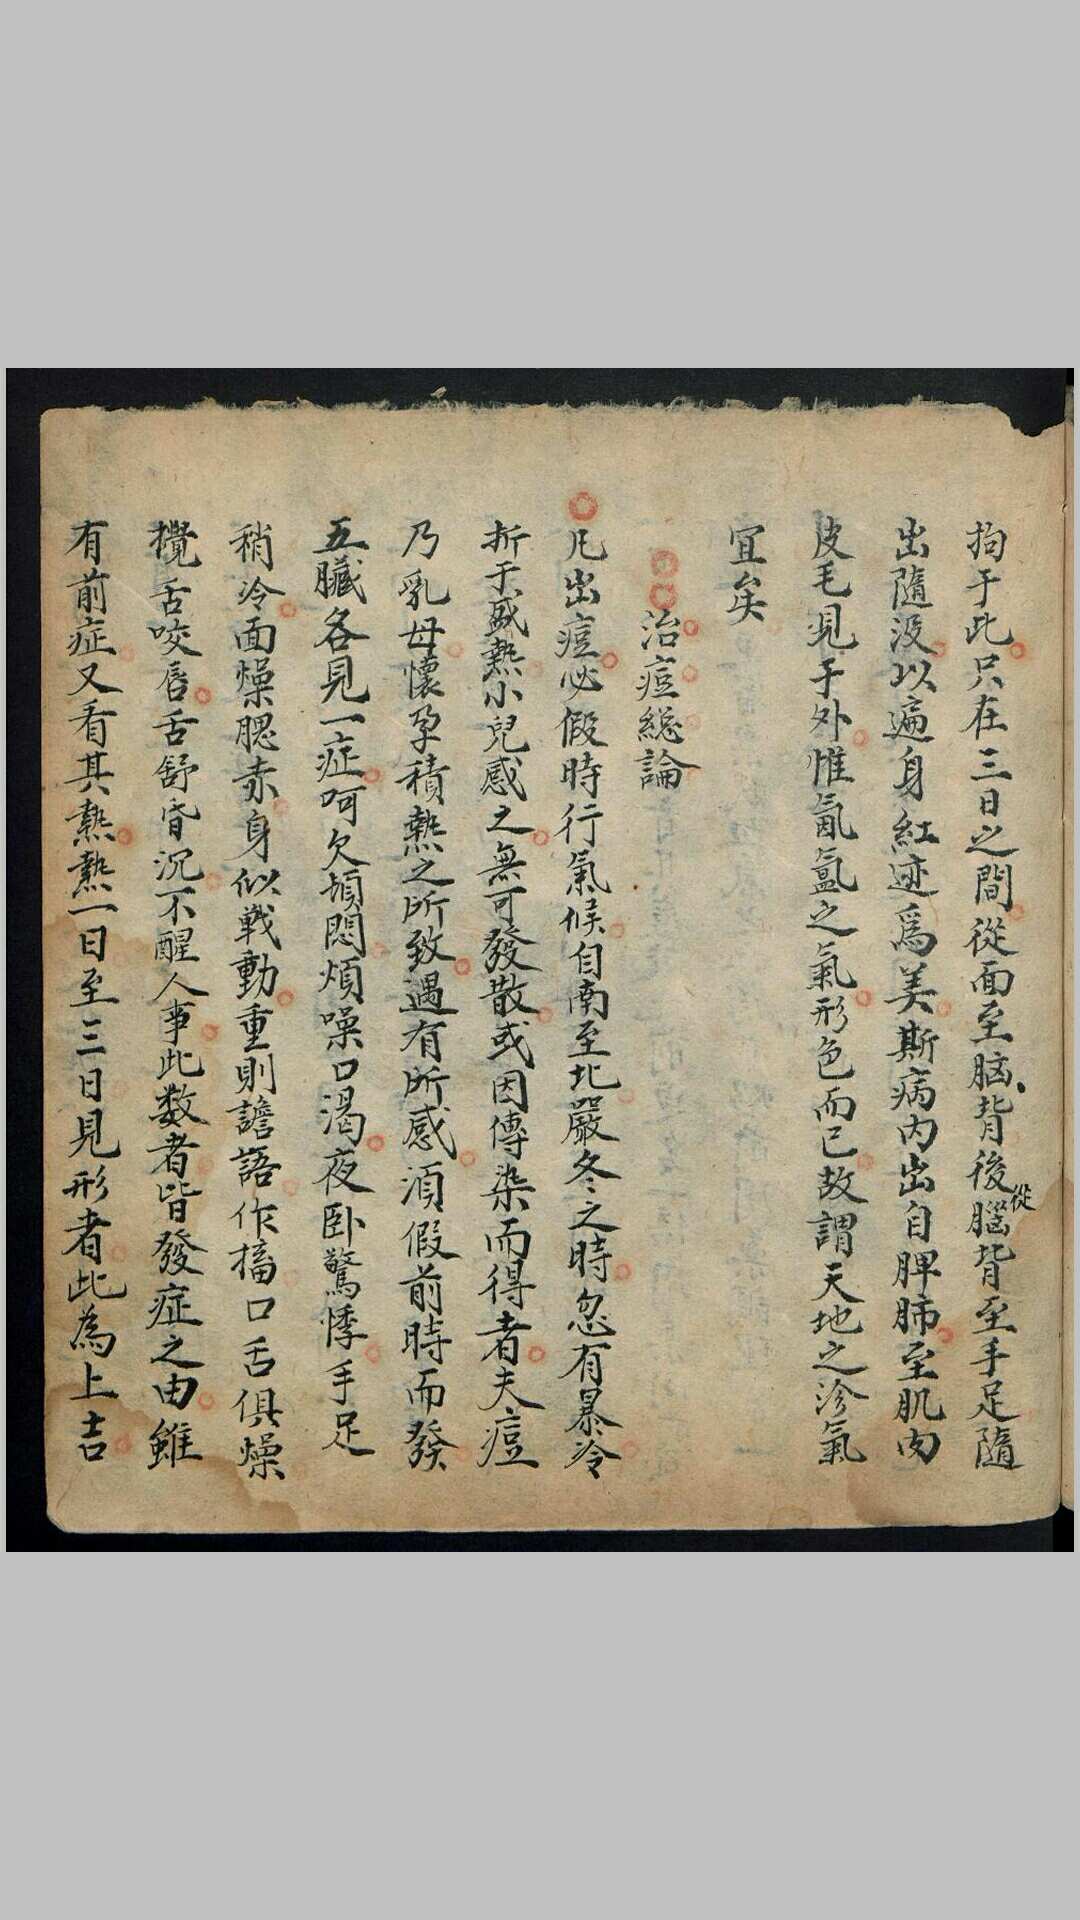 拘于此只在三日之間從面至脳背後從腦背至手足隨
出隨没以遍身紅迹爲美斯病内出自脾肺至肌肉
皮毛見于外惟氤氳之氣形色而已故謂天地之沴氣
宜矣
治痘総論
凡出痘必假時行氣候自南至北嚴冬之時忽有暴冷
折于盛熱小兒感之無可發散或因傳染而得者夫痘
乃乳母懷孕積熱之所致遇有所感須假前時而發
五臟各見一症呵欠頓悶煩噪口渴夜卧驚悸手足
稍冷面燥腮赤身似戦動重則譫語作搐口舌俱燥
攪舌咬唇舌舒昏沉不醒人事此数者皆發症之由雖
有前症又看其熱熱一日至三日見形者此為上吉